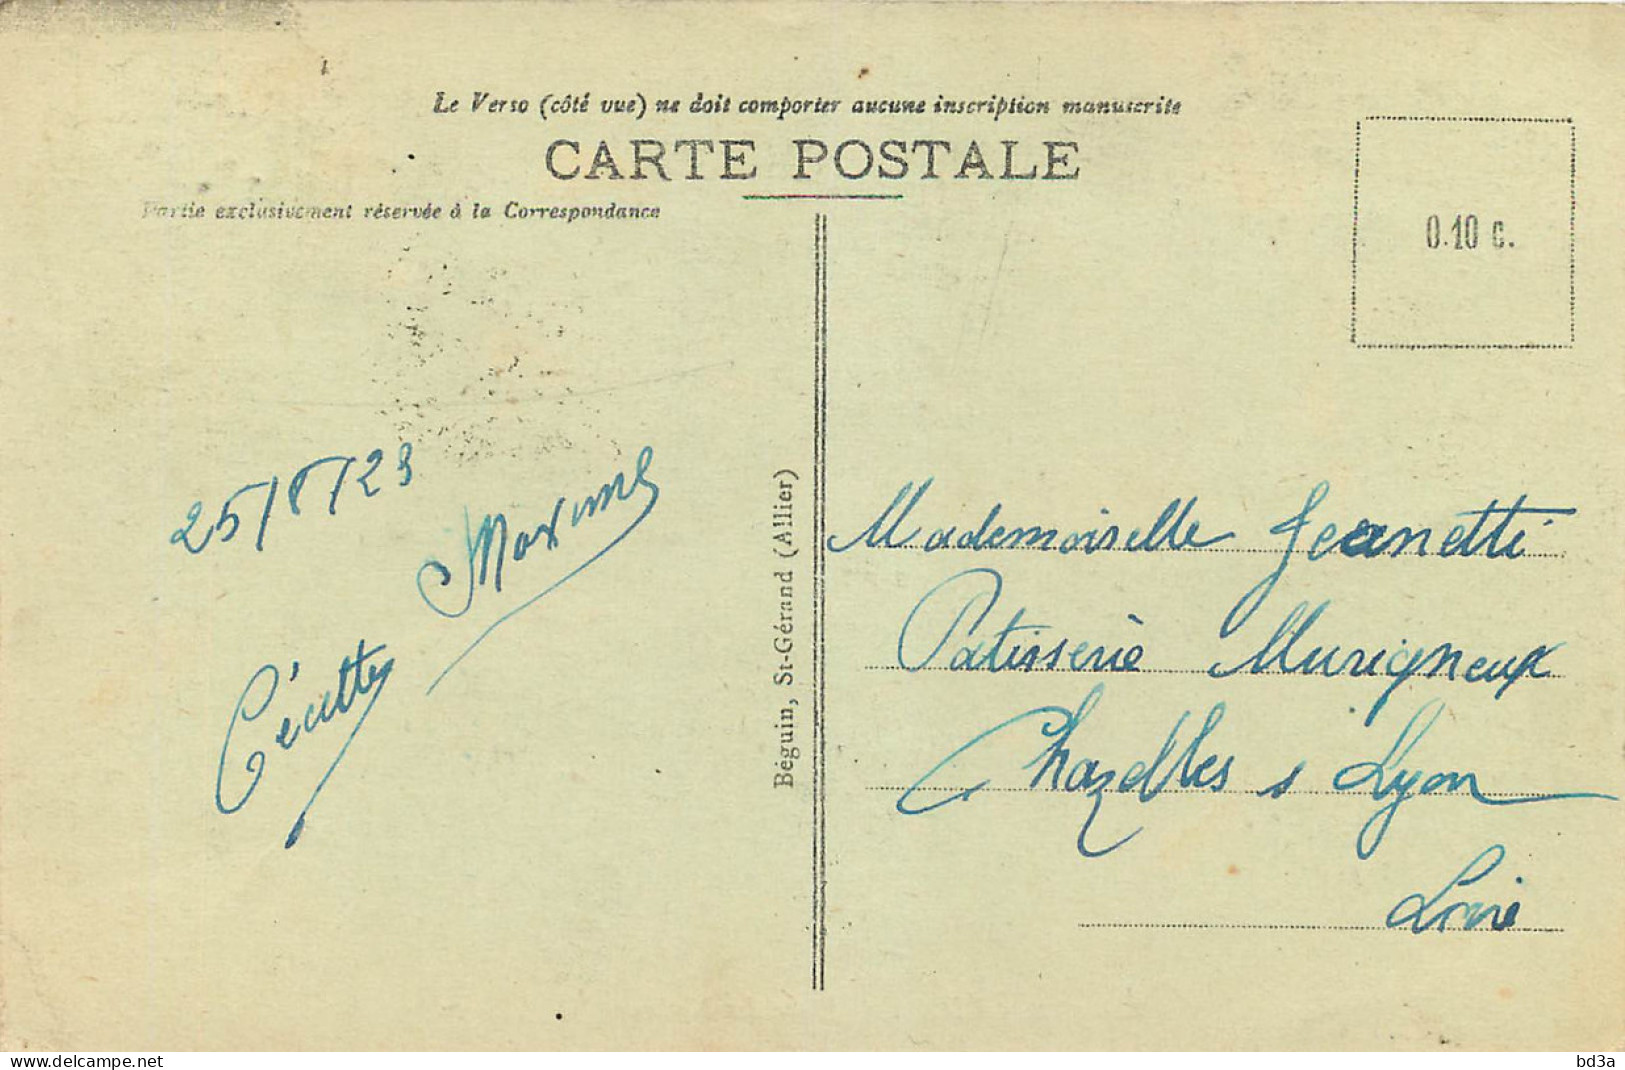 Le Verso (côté vue) ne doit comporter aucune inscription manuscrite
CARTE POSTALE
Partie exclusivement réservée à la Correspondance
0.10 c.
25/8/23
Maxime
Béguin, St-Gérand (Allier)
Mademoiselle Jeanette
Patisserie Murigneux
Chazelles s Lyon
Loire
www.delcampe.net
bd3a